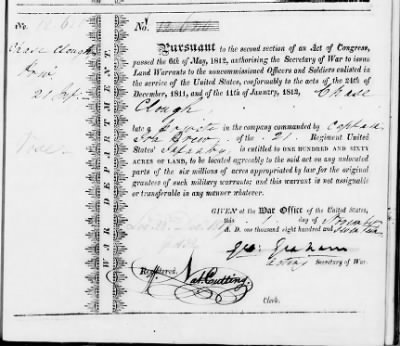 No.
Pursuant to the second section of an Act of Congress,
passed the 6th of May, 1812, authorising the Secretary of War to issue
Land Warrants to the noncommissioned Officers and Soldiers enlisted in
the service of the United States, conformably to the acts of the 24th of
December, 1811, and of the 11th of January, 1812, Chase
Clough
late a private in the company commanded by Captain
Drew of the 21 Regiment United
States' Infantry, is entitled to ONE HUNDRED AND SIXTY
ACRES OF LAND, to be located agreeably to the said act on any unlocated
parts of the six millions of acres appropriated by law for the original
grantees of such military warrants; and this warrant is not assignable
or transferable in any manner whatever.
GIVEN at the War Office of the United States,
this day of November
A. D. one thousand eight hundred and
Geo: Graham
Acting Secretary of War.
Registered.
Nat. Cutting
Clerk.
No.
Chase Clough
Drew
21 Inf
WAR DEPARTMENT.